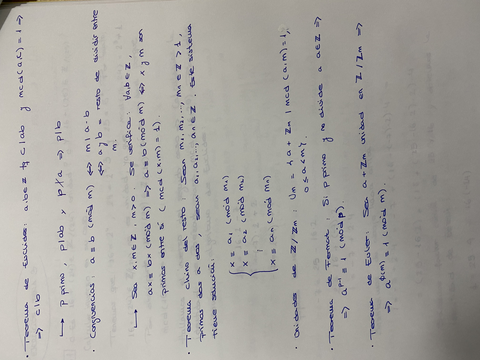 · Teorema de Euclides: a,b∈Z tq c|ab y mcd(a,c)=1 ⇒
⇒ c|b
→ p primo, p|ab y p∤a ⇒ p|b
· Congruencias: a≡b (mód m) ⇔ m | a-b
⇔ a y b = resto de dividir entre
m.
→ Sea x,m∈Z, m>0. Se verifica: ∀a,b∈Z,
ax≡bx (mód m) ⇒ a≡b (mód m) ⇔ x y m son
primos entre sí (mcd(x,m)=1).
· Teorema chino del resto: Sean m₁, m₂, ..., mₙ∈Z >1,
primos dos a dos, sean a₁, a₂, ..., aₙ∈Z. Este sistema
tiene solución:
x≡a₁ (mód m₁)
x≡a₂ (mód m₂)
⋮
x≡aₙ (mód mₙ)
· Unidades de Z/Zm: Um = {a+Zm | mcd(a,m)=1,
0≤a<m}.
· Teorema de Fermat: Si p primo y no divide a a∈Z ⇒
⇒ aᵖ⁻¹≡1 (mód p)
· Teorema de Euler: Sea a+Zm unidad en Z/Zm ⇒
⇒ a^φ(m)≡1 (mód m).